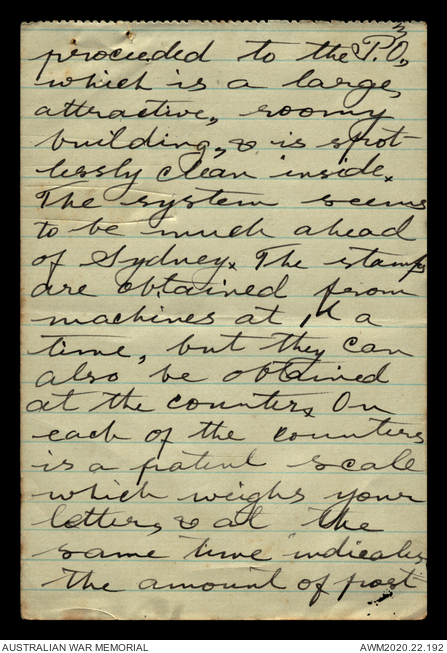 3
proceeded to the P.O,
which is a large,
attractive, roomy
building, & is spot-
lessly clean inside.
The system seems
to be much ahead
of Sydney. The stamps
are obtained from
machines at 1d a
time, but they can
also be obtained
at the counters. On
each of the counters
is a patent scale
which weighs your
letter, & at the
same time indicates
the amount of post
AUSTRALIAN WAR MEMORIAL
AWM2020.22.192